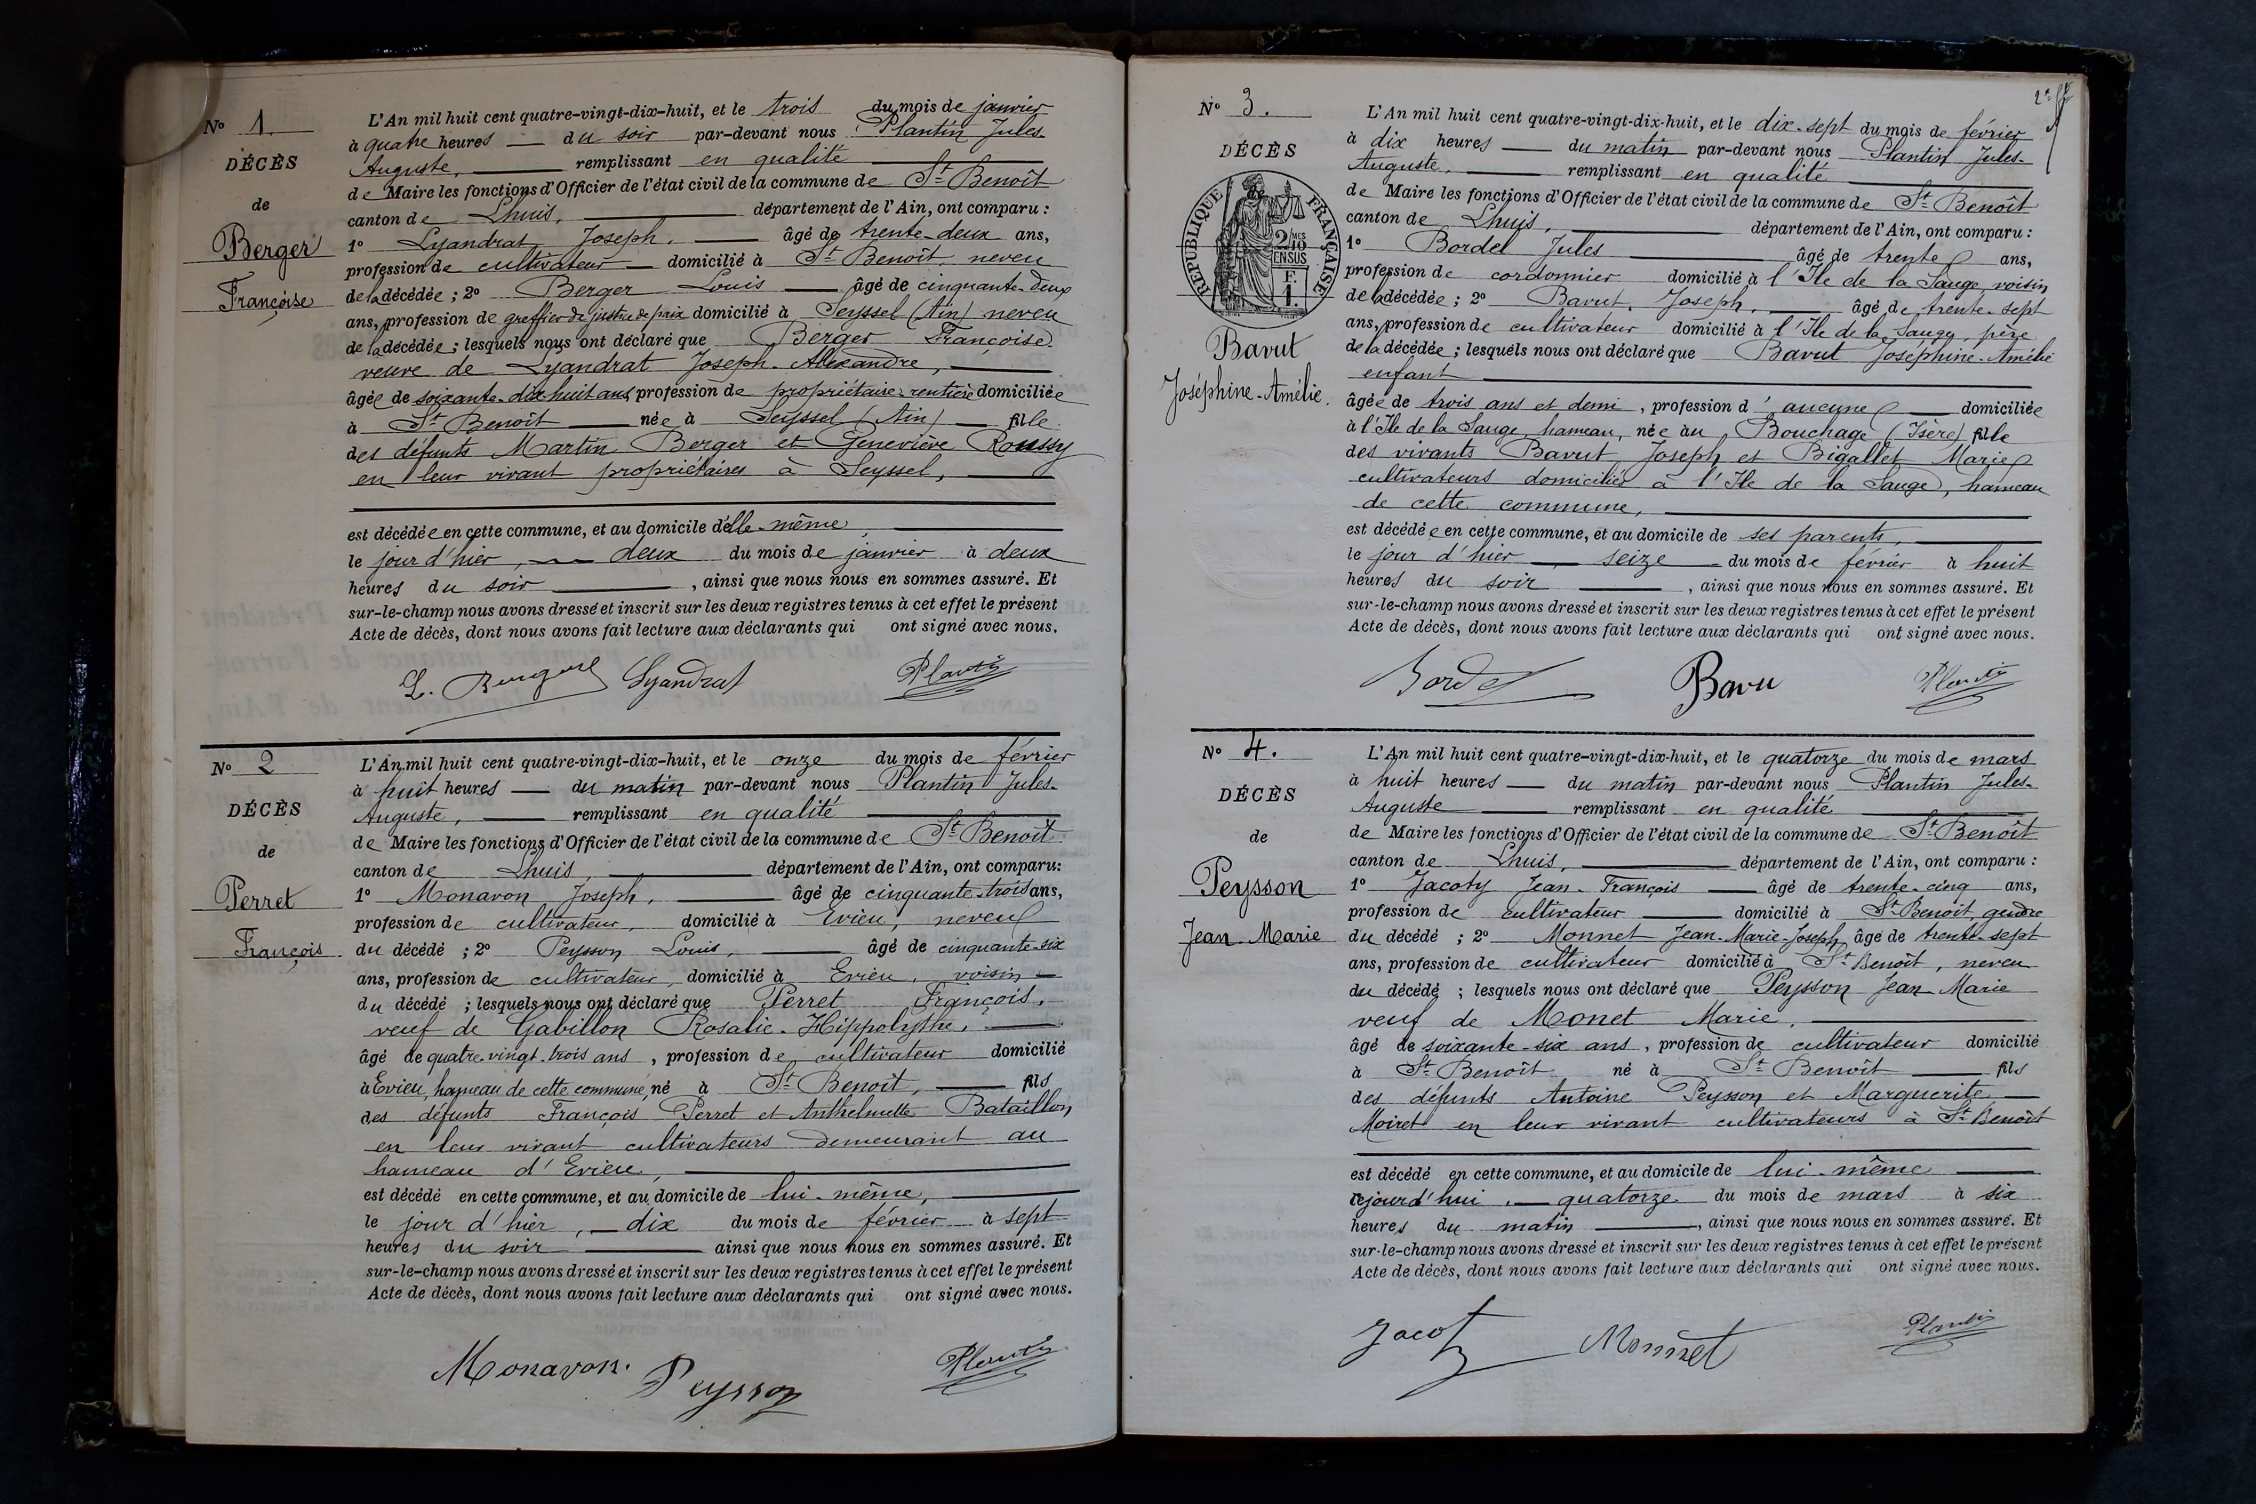 N° 1.
DÉCÈS
de
Berger
Françoise
L'An mil huit cent quatre-vingt-dix-huit, et le trois du mois de janvier
à quatre heures — du soir par-devant nous Plantin Jules
Auguste, — remplissant en qualité —
de Maire les fonctions d'Officier de l'état civil de la commune de St Benoît
canton de Lhuis, — département de l'Ain, ont comparu :
1° Lyandrat Joseph, — âgé de trente-deux ans,
profession de cultivateur — domicilié à St Benoît neveu
de la décédée ; 2° Berger Louis — âgé de cinquante-deux
ans, profession de greffier de justice de paix domicilié à Seyssel (Ain) neveu
de la décédée ; lesquels nous ont déclaré que Berger Françoise
veuve de Lyandrat Joseph-Alexandre, —
âgée de soixante-dix-huit ans profession de propriétaire-rentière domiciliée
à St Benoît — née à Seyssel (Ain) — fille
des défunts Martin Berger et Geneviève Roussy
en leur vivant propriétaires à Seyssel, —
est décédée en cette commune, et au domicile d'elle-même —
le jour d'hier, — deux du mois de janvier à deux
heures du soir — , ainsi que nous nous en sommes assuré. Et
sur-le-champ nous avons dressé et inscrit sur les deux registres tenus à cet effet le présent
Acte de décès, dont nous avons fait lecture aux déclarants qui ont signé avec nous.
L. Berger Lyandrat Plantin
N° 2
DÉCÈS
de
Perret
François
L'An mil huit cent quatre-vingt-dix-huit, et le onze du mois de février
à huit heures — du matin par-devant nous Plantin Jules-
Auguste, — remplissant en qualité —
de Maire les fonctions d'Officier de l'état civil de la commune de St Benoît
canton de Lhuis, — département de l'Ain, ont comparu:
1° Monavon Joseph, — âgé de cinquante-trois ans,
profession de cultivateur, domicilié à Evieu, neveu
du décédé ; 2° Peysson Louis, — âgé de cinquante-six
ans, profession de cultivateur, domicilié à Evieu, voisin —
du décédé ; lesquels nous ont déclaré que Perret François,
veuf de Gabillon Rosalie-Hippolythe, —
âgé de quatre-vingt-trois ans , profession de cultivateur domicilié
à Evieu, hameau de cette commune, né à St Benoît, — fils
des défunts François Perret et Anthelmette Bataillon
en leur vivant cultivateurs demeurant au
hameau d'Evieu, —
est décédé en cette commune, et au domicile de lui-même, —
le jour d'hier, — dix du mois de février à sept
heures du soir — ainsi que nous nous en sommes assuré. Et
sur-le-champ nous avons dressé et inscrit sur les deux registres tenus à cet effet le présent
Acte de décès, dont nous avons fait lecture aux déclarants qui ont signé avec nous.
Monavon. Peysson Plantin
N° 3.
DÉCÈS
RÉPUBLIQUE FRANÇAISE
2/10 MES
EN SUS
F.
1.
Bavut
Joséphine-Amélie.
L'An mil huit cent quatre-vingt-dix-huit, et le dix-sept du mois de février
à dix heures — du matin par-devant nous Plantin Jules-
Auguste, — remplissant en qualité —
de Maire les fonctions d'Officier de l'état civil de la commune de St Benoît
canton de Lhuis, — département de l'Ain, ont comparu :
1° Bordel Jules — âgé de trente ans,
profession de cordonnier domicilié à l'Ile de la Sauge, voisin
de la décédée ; 2° Bavut, Joseph, — âgé de trente-sept
ans, profession de cultivateur domicilié à l'Ile de la Sauge, père
de la décédée ; lesquels nous ont déclaré que Bavut Joséphine-Amélie
enfant —
âgée de trois ans et demi , profession d'aucune — domiciliée
à l'Ile de la Sauge, hameau, née au Bouchage (Isère) fille
des vivants Bavut Joseph et Bigallet Marie
cultivateurs domiciliés à l'Ile de la Sauge, hameau
de cette commune, —
est décédée en cette commune, et au domicile de ses parents, —
le jour d'hier — seize — du mois de février à huit
heures du soir — , ainsi que nous nous en sommes assuré. Et
sur-le-champ nous avons dressé et inscrit sur les deux registres tenus à cet effet le présent
Acte de décès, dont nous avons fait lecture aux déclarants qui ont signé avec nous.
Bordel Bavu Plantin
N° 4.
DÉCÈS
de
Peysson
Jean-Marie
L'An mil huit cent quatre-vingt-dix-huit, et le quatorze du mois de mars
à huit heures — du matin par-devant nous Plantin Jules-
Auguste — remplissant en qualité —
de Maire les fonctions d'Officier de l'état civil de la commune de St Benoît
canton de Lhuis, — département de l'Ain, ont comparu :
1° Jacoty Jean-François — âgé de trente-cinq ans,
profession de cultivateur — domicilié à St Benoît, gendre
du décédé ; 2° Monnet Jean-Marie-Joseph, âgé de trente-sept
ans, profession de cultivateur domicilié à St Benoît, neveu
du décédé ; lesquels nous ont déclaré que Peysson Jean Marie
veuf de Monet Marie, —
âgé de soixante-six ans , profession de cultivateur domicilié
à St Benoît né à St Benoît — fils
des défunts Antoine Peysson et Marguerite —
Moiret en leur vivant cultivateurs à St Benoît
est décédé en cette commune, et au domicile de lui-même —
cejourd'hui, — quatorze du mois de mars à six
heures du matin — , ainsi que nous nous en sommes assuré. Et
sur-le-champ nous avons dressé et inscrit sur les deux registres tenus à cet effet le présent
Acte de décès, dont nous avons fait lecture aux déclarants qui ont signé avec nous.
Jacoty Monnet Plantin